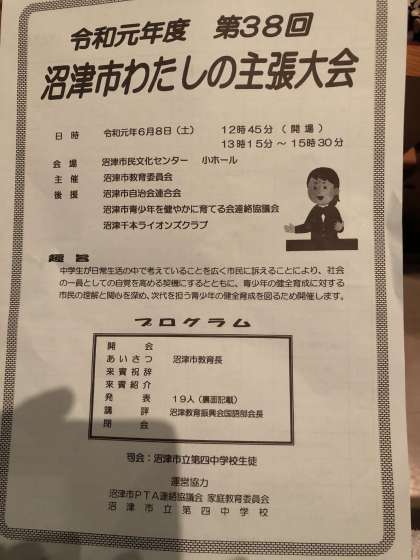 令和元年度 第38回
沼津市わたしの主張大会
日時 令和元年6月8日(土) 12時45分(開場)
13時15分~15時30分
会場 沼津市民文化センター 小ホール
主催 沼津市教育委員会
後援 沼津市自治会連合会
沼津市青少年を健やかに育てる会連絡協議会
沼津千本ライオンズクラブ
趣旨
中学生が日常生活の中で考えていることを広く市民に訴えることにより、社会
の一員としての自覚を高める契機にするとともに、青少年の健全育成に対する
市民の理解と関心を深め、次代を担う青少年の健全育成を図るため開催します。
プログラム
開会
あいさつ 沼津市教育長
来賓祝辞
来賓紹介
発表 19人(裏面記載)
講評 沼津教育振興会国語部会長
閉会
司会:沼津市立第四中学校生徒
運営協力
沼津市PTA連絡協議会 家庭教育委員会
沼津市立第四中学校